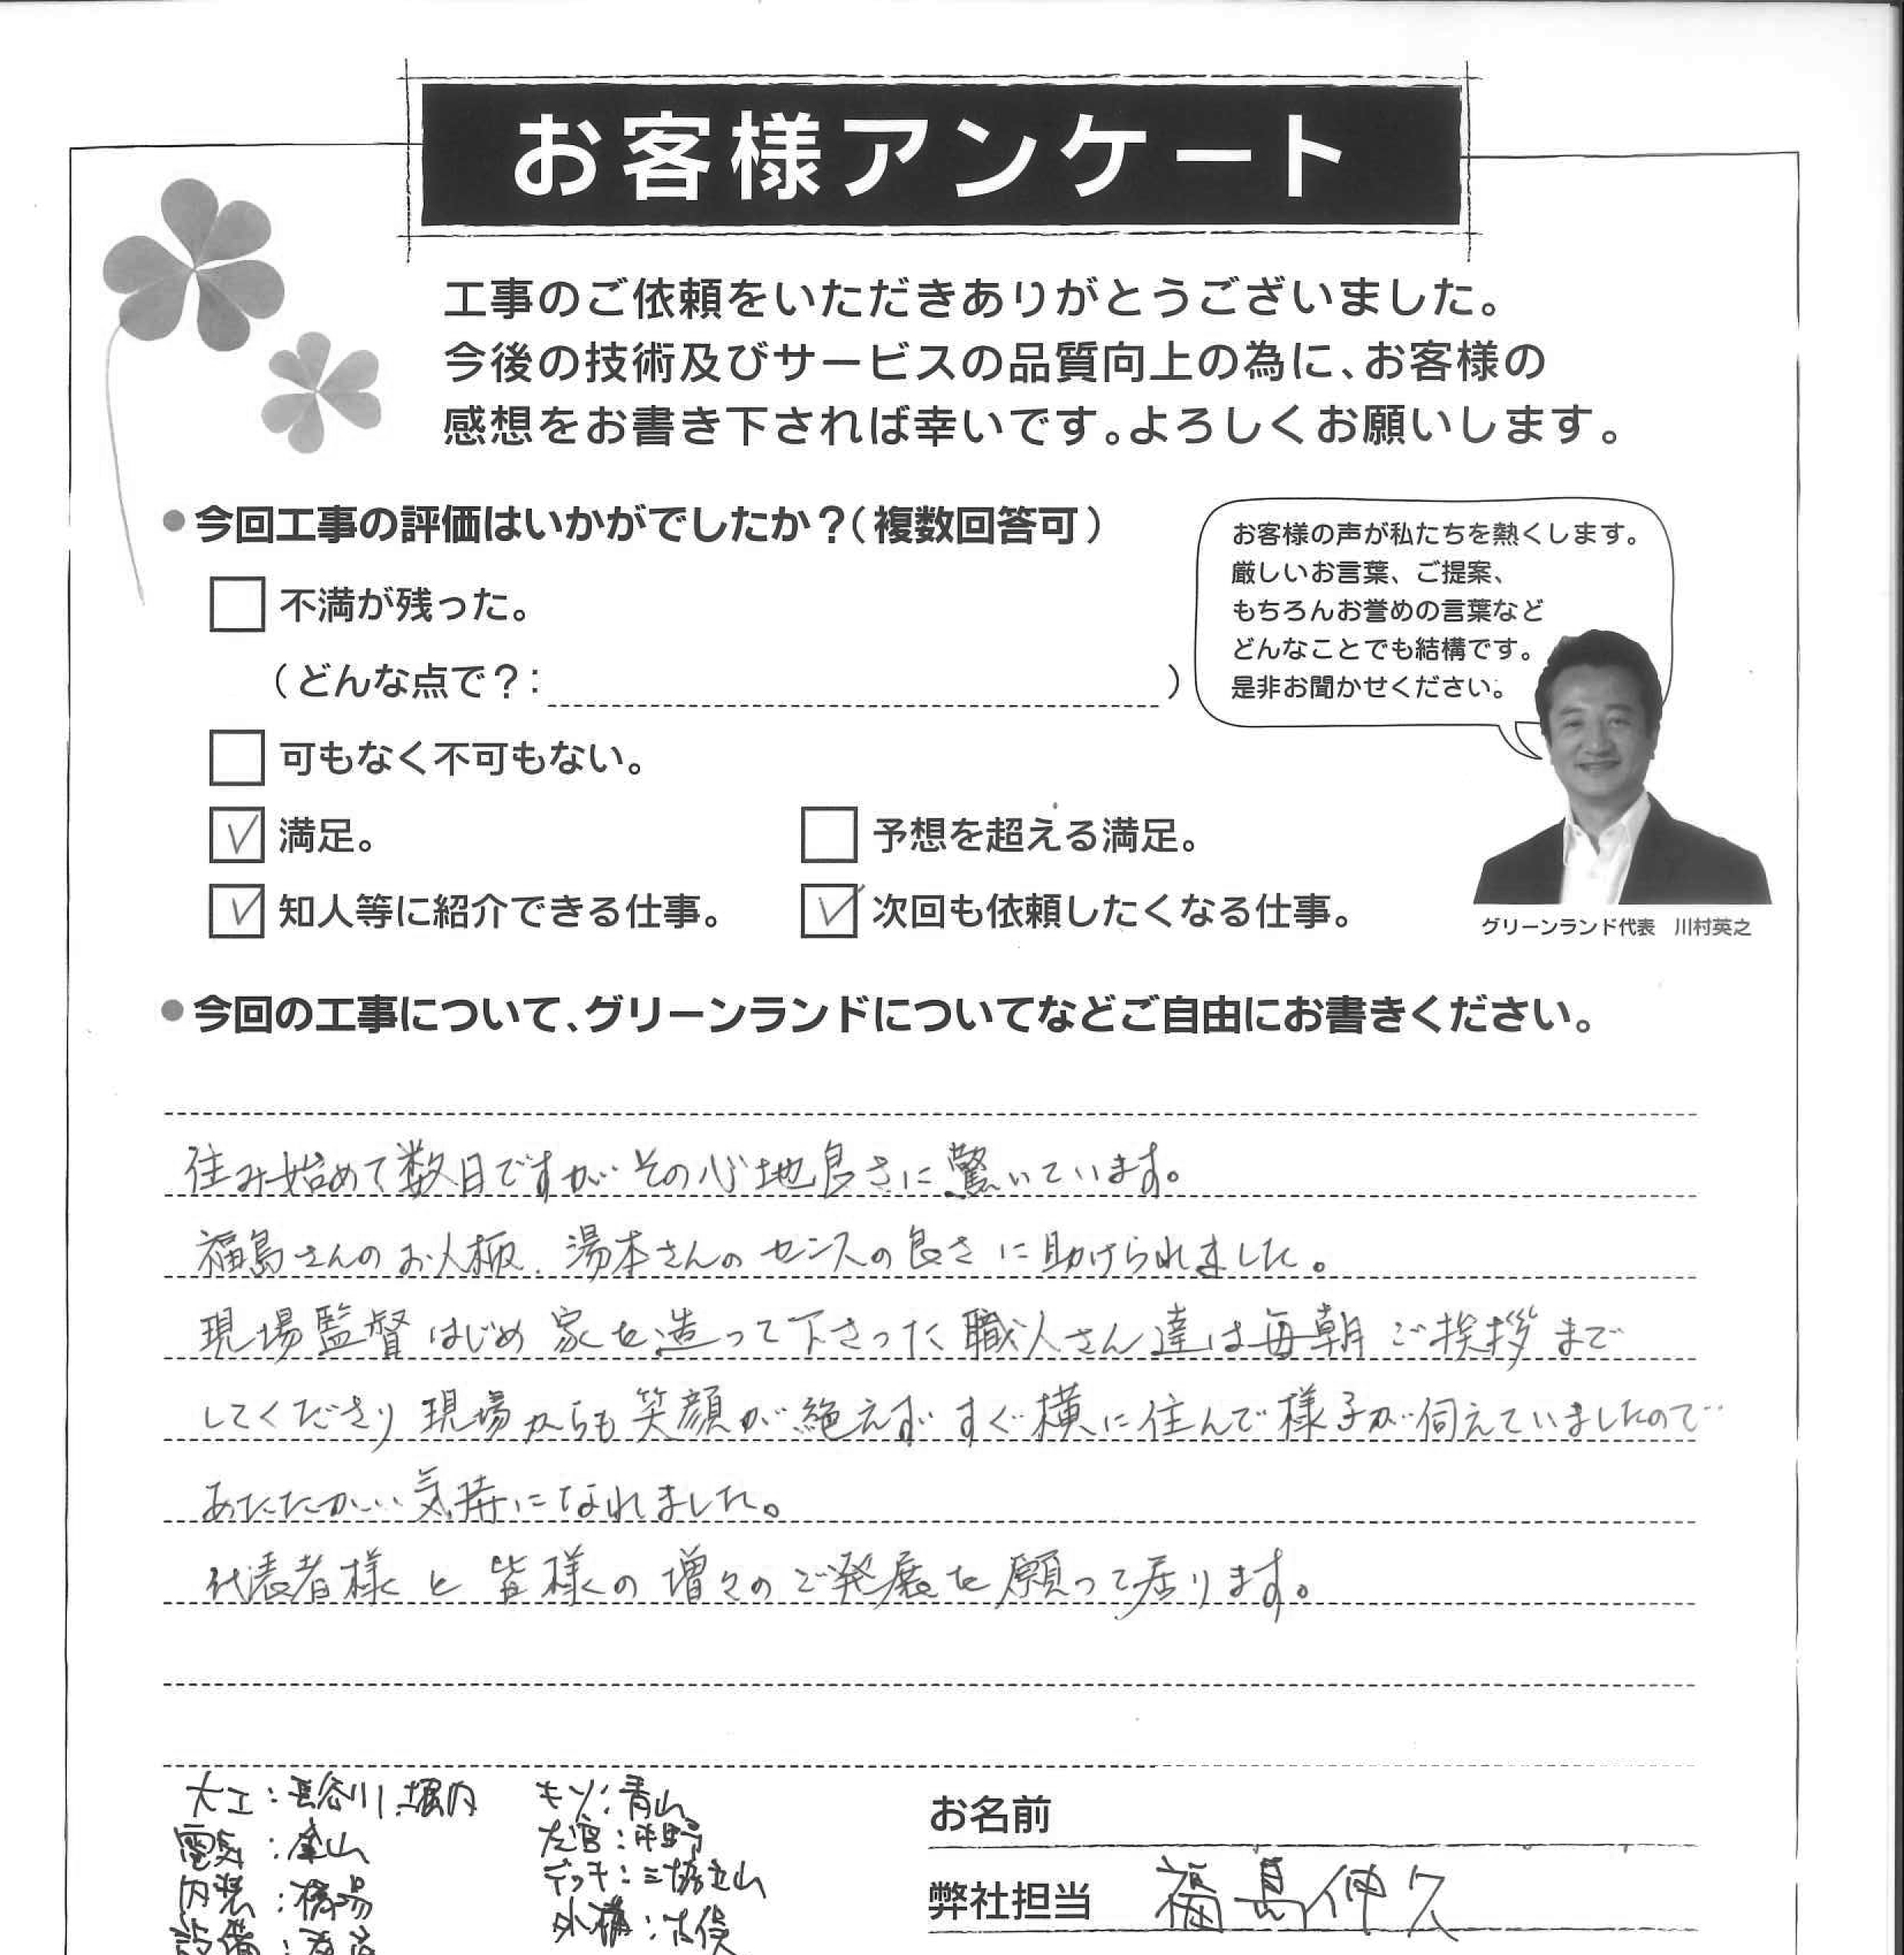 お客様アンケート
工事のご依頼をいただきありがとうございました。
今後の技術及びサービスの品質向上の為に、お客様の
感想をお書き下されば幸いです。よろしくお願いします。
●今回工事の評価はいかがでしたか？(複数回答可)
不満が残った。
(どんな点で？: )
可もなく不可もない。
満足。 予想を超える満足。
知人等に紹介できる仕事。 次回も依頼したくなる仕事。
お客様の声が私たちを熱くします。
厳しいお言葉、ご提案、
もちろんお誉めの言葉など
どんなことでも結構です。
是非お聞かせください。
グリーンランド代表 川村英之
●今回の工事について、グリーンランドについてなどご自由にお書きください。
住み始めて数日ですが その心地良さに驚いています。
福島さんのお人柄、湯本さんのセンスの良さに助けられました。
現場監督はじめ家を造って下さった職人さん達は毎朝ご挨拶まで
してくださり現場からも笑顔が絶えずすぐ横に住んで様子が伺えていましたので
あたたかい気持になれました。
代表者様と皆様の増々のご発展を願って居ります。
大工:長谷川、堀内
電気:金山
内装:橋場
設備:
キソ:青山
左官:中野
デッキ:三協立山
外構:古俣
お名前
弊社担当 福島伸久